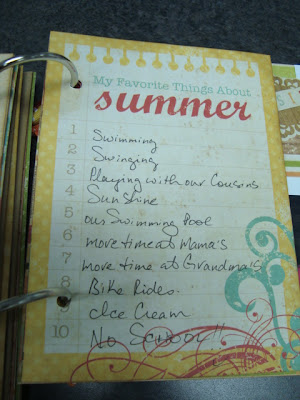 My Favorite Things About
summer
1 Swimming
2 Swinging
3 Playing with our Cousons
4 Sunshine
5 our Swimming Pool
6 more time at Mama's
7 more time at Grandma's
8 Bike Rides.
9 Ice Cream
10 No School!!